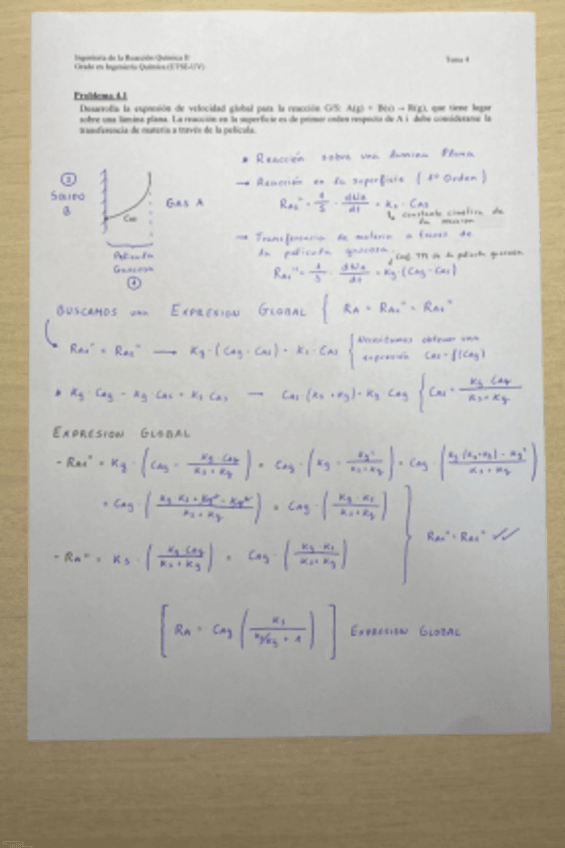 Ingeniería de la Reacción Química II
Grado en Ingeniería Química (ETSE-UV)
Tema 4
Problema 4.1
Desarrolla la expresión de velocidad global para la reacción G/S: A(g) + B(s) → R(g), que tiene lugar
sobre una lámina plana. La reacción en la superficie es de primer orden respecto de A i debe considerarse la
transferencia de materia a través de la película.
* Reacción sobre una lamina Plana
→ Reacción en la superficie (1º Orden)
RAs" = 1/S · dNA/dt = Ks · CAs
↳ constante cinetica de la reacción
② SOLIDO B
CAs
GAS A
Pelicula Gaseosa
①
→ Transferencia de materia a traves de
la pelicula gaseosa
Coef TM de la pelicula gaseosa
RAs" = 1/S · dNA/dt = Kg · (CAg - CAs)
BUSCAMOS una EXPRESION GLOBAL { RA = RAs" = RAs"
RAs" = RAs" → Kg · (CAg - CAs) = Ks · CAs { Necesitamos obtener una
expresión CAs = f(CAg)
* Kg · CAg - Kg CAs = Ks CAs → CAs · (Ks + Kg) = Kg CAg { CAs = Kg CAg / Ks + Kg
EXPRESION GLOBAL
- RAs" = Kg · (CAg - Kg · CAg / Ks + Kg) = CAg · (Kg - Kg² / Ks + Kg) = CAg · (Kg (Ks + Kg) - Kg² / Ks + Kg)
= CAg · (Kg Ks + Kg² - Kg² / Ks + Kg) = CAg · (Kg · Ks / Ks + Kg)
RAs" = RAs" ✓✓
- RA" = Ks · (Kg CAg / Ks + Kg) = CAg · (Kg · Ks / Ks + Kg)
[ RA = CAg (Ks / Ks/Kg + 1) ] EXPRESION GLOBAL